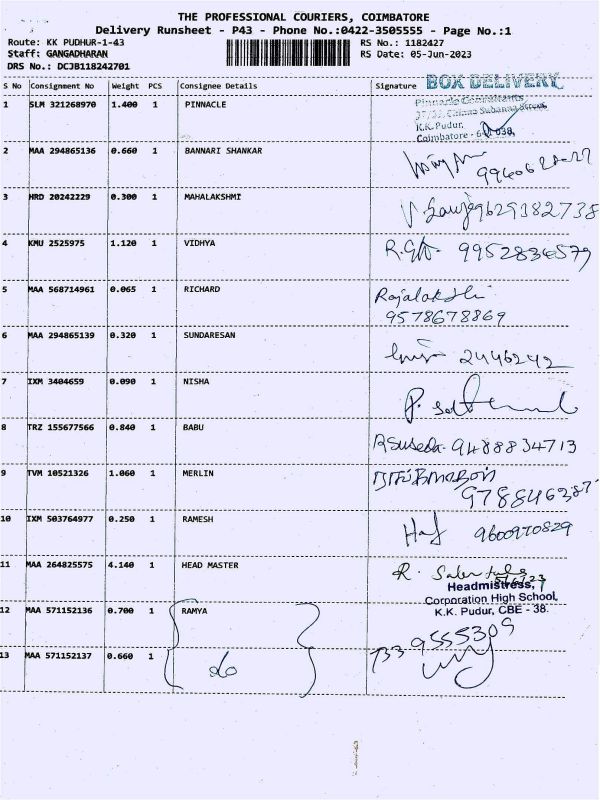 THE PROFESSIONAL COURIERS, COIMBATORE
Delivery Runsheet - P43 - Phone No.:0422-3505555 - Page No.:1
Route: KK PUDHUR-1-43 RS No.: 1182427
Staff: GANGADHARAN RS Date: 05-Jun-2023
DRS No.: DCJB118242701
S No Consignment No Weight PCS Consignee Details Signature BOX DELIVERY
1 SLM 321268970 1.400 1 PINNACLE Pinnacle Consultants
K.K. Pudur,
Coimbatore -
2 MAA 294865136 0.660 1 BANNARI SHANKAR
3 HRD 20242229 0.300 1 MAHALAKSHMI 9629382738
4 KMU 2525975 1.120 1 VIDHYA 9952834579
5 MAA 568714961 0.065 1 RICHARD Rajalakshi
9578678869
6 MAA 294865139 0.320 1 SUNDARESAN 2446242
7 IXM 3404659 0.090 1 NISHA
8 TRZ 155677566 0.840 1 BABU 9488834713
9 TVM 10521326 1.060 1 MERLIN
10 IXM 503764977 0.250 1 RAMESH 9600970829
11 MAA 264825575 4.140 1 HEAD MASTER R.
Headmistress,
Corporation High School,
K.K. Pudur, CBE - 38.
12 MAA 571152136 0.700 1 RAMYA 9555309
13 MAA 571152137 0.660 1 733